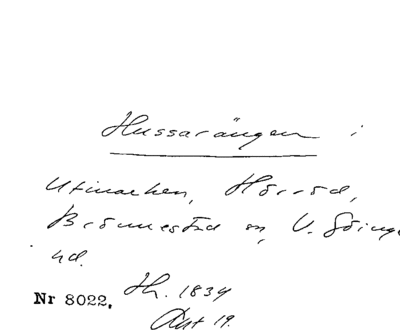 Hussarängen i
Utmarken, Hörröd,
Brönnestad sn, V. Göinge
hd.
Nr 8022. Th. 1834
Akt 19.